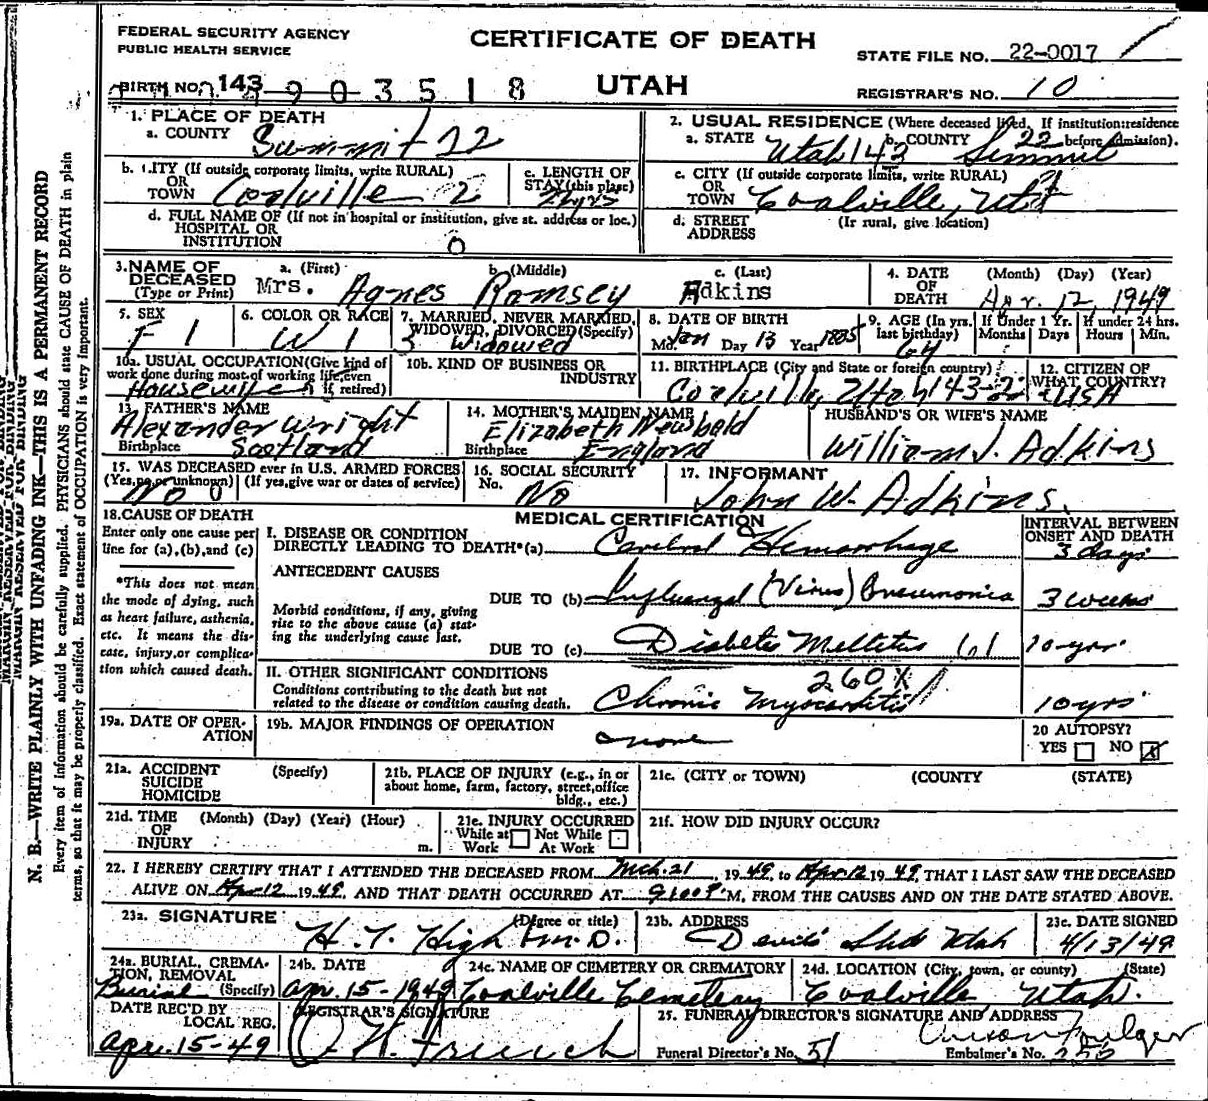 FEDERAL SECURITY AGENCY
PUBLIC HEALTH SERVICE
CERTIFICATE OF DEATH
STATE FILE NO. 22-0017
BIRTH NO. 143 903518
UTAH
REGISTRAR'S NO. 10
1. PLACE OF DEATH
a. COUNTY Summit 22
2. USUAL RESIDENCE (Where deceased lived, If institution:residence before admission).
a. STATE Utah 143 b. COUNTY 22 Summit
b. CITY (If outside corporate limits, write RURAL) OR TOWN Coalville 2
c. LENGTH OF STAY (this place)
c. CITY (If outside corporate limits, write RURAL) OR TOWN Coalville, Utah
d. FULL NAME OF (If not in hospital or institution, give st. address or loc.) HOSPITAL OR INSTITUTION 0
d. STREET ADDRESS (Ir rural, give location)
3. NAME OF DECEASED (Type or Print) a. (First) b. (Middle) c. (Last)
Mrs. Agnes Ramsey Adkins
4. DATE OF DEATH (Month) (Day) (Year)
Apr. 12, 1949
5. SEX F 1
6. COLOR OR RACE W 1
7. MARRIED, NEVER MARRIED, WIDOWED, DIVORCED (Specify) 3 Widowed
8. DATE OF BIRTH
Mo. Jan Day 13 Year 1885
9. AGE (In yrs. last birthday) 64
If Under 1 Yr. Months Days
If under 24 hrs. Hours Min.
10a. USUAL OCCUPATION (Give kind of work done during most of working life, even if retired) Housewife
10b. KIND OF BUSINESS OR INDUSTRY
11. BIRTHPLACE (City and State or foreign country) Coalville, Utah 143-22
12. CITIZEN OF WHAT COUNTRY? USA
13. FATHER'S NAME Alexander Wright
Birthplace Scotland
14. MOTHER'S MAIDEN NAME Elizabeth Newbold
Birthplace England
HUSBAND'S OR WIFE'S NAME
William J. Adkins
15. WAS DECEASED ever in U.S. ARMED FORCES
(Yes, no, or unknown) (If yes, give war or dates of service)
No 0
16. SOCIAL SECURITY No. No
17. INFORMANT
John W. Adkins.
18. CAUSE OF DEATH
Enter only one cause per line for (a), (b), and (c)
*This does not mean the mode of dying, such as heart failure, asthenia, etc. It means the disease, injury, or complication which caused death.
MEDICAL CERTIFICATION
INTERVAL BETWEEN ONSET AND DEATH
I. DISEASE OR CONDITION DIRECTLY LEADING TO DEATH*(a) Cerebral Hemorrhage 3 days
ANTECEDENT CAUSES
Morbid conditions, if any, giving rise to the above cause (a) stating the underlying cause last.
DUE TO (b) Influenzal (Virus) Pneumonia 3 weeks
DUE TO (c) Diabetes Mellitus 10-yrs.
II. OTHER SIGNIFICANT CONDITIONS
Conditions contributing to the death but not related to the disease or condition causing death.
260X
Chronic Myocarditis 10 yrs
19a. DATE OF OPERATION
19b. MAJOR FINDINGS OF OPERATION
none
20 AUTOPSY?
YES NO X
21a. ACCIDENT SUICIDE HOMICIDE (Specify)
21b. PLACE OF INJURY (e.g., in or about home, farm, factory, street, office bldg., etc.)
21c. (CITY or TOWN) (COUNTY) (STATE)
21d. TIME OF INJURY (Month) (Day) (Year) (Hour) m.
21e. INJURY OCCURRED
While at Work Not While At Work
21f. HOW DID INJURY OCCUR?
22. I HEREBY CERTIFY THAT I ATTENDED THE DECEASED FROM Mch. 21, 1949, to Apr. 12 1949, THAT I LAST SAW THE DECEASED
ALIVE ON Apr 12 1949, AND THAT DEATH OCCURRED AT 9:00 P M, FROM THE CAUSES AND ON THE DATE STATED ABOVE.
23a. SIGNATURE (Degree or title)
M.D.
23b. ADDRESS
Devils Slide Utah
23c. DATE SIGNED
4/13/49
24a. BURIAL, CREMATION, REMOVAL (Specify) Burial
24b. DATE
Apr. 15-1949
24c. NAME OF CEMETERY OR CREMATORY
Coalville Cemetery
24d. LOCATION (City, town, or county) (State)
Coalville, Utah.
DATE REC'D BY LOCAL REG.
Apr. 15-49
REGISTRAR'S SIGNATURE
25. FUNERAL DIRECTOR'S SIGNATURE AND ADDRESS
Funeral Director's No. 51
Embalmer's No.
N. B.—WRITE PLAINLY WITH UNFADING INK—THIS IS A PERMANENT RECORD
Every item of information should be carefully supplied. PHYSICIANS should state CAUSE OF DEATH in plain
terms, so that it may be properly classified. Exact statement of OCCUPATION is very important.
MARGIN RESERVED FOR BINDING